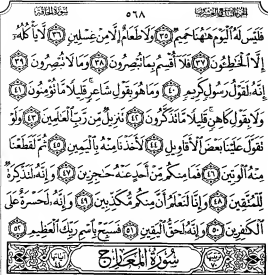 سورة الحاقة ٥٦٨ الجزء التاسع والعشرون
فَلَيْسَ لَهُ الْيَوْمَ هَٰهُنَا حَمِيمٌ ٣٥ وَلَا طَعَامٌ إِلَّا مِنْ غِسْلِينٍ ٣٦ لَا يَأْكُلُهُ
إِلَّا الْخَاطِئُونَ ٣٧ فَلَا أُقْسِمُ بِمَا تُبْصِرُونَ ٣٨ وَمَا لَا تُبْصِرُونَ ٣٩
إِنَّهُ لَقَوْلُ رَسُولٍ كَرِيمٍ ٤٠ وَمَا هُوَ بِقَوْلِ شَاعِرٍ قَلِيلًا مَا تُؤْمِنُونَ ٤١
وَلَا بِقَوْلِ كَاهِنٍ قَلِيلًا مَا تَذَكَّرُونَ ٤٢ تَنزِيلٌ مِن رَّبِّ الْعَالَمِينَ ٤٣ وَلَوْ
تَقَوَّلَ عَلَيْنَا بَعْضَ الْأَقَاوِيلِ ٤٤ لَأَخَذْنَا مِنْهُ بِالْيَمِينِ ٤٥ ثُمَّ لَقَطَعْنَا
مِنْهُ الْوَتِينَ ٤٦ فَمَا مِنكُم مِّنْ أَحَدٍ عَنْهُ حَاجِزِينَ ٤٧ وَإِنَّهُ لَتَذْكِرَةٌ
لِّلْمُتَّقِينَ ٤٨ وَإِنَّا لَنَعْلَمُ أَنَّ مِنكُم مُّكَذِّبِينَ ٤٩ وَإِنَّهُ لَحَسْرَةٌ عَلَى
الْكَافِرِينَ ٥٠ وَإِنَّهُ لَحَقُّ الْيَقِينِ ٥١ فَسَبِّحْ بِاسْمِ رَبِّكَ الْعَظِيمِ ٥٢
سُورَةُ الْمَعَارِجِ